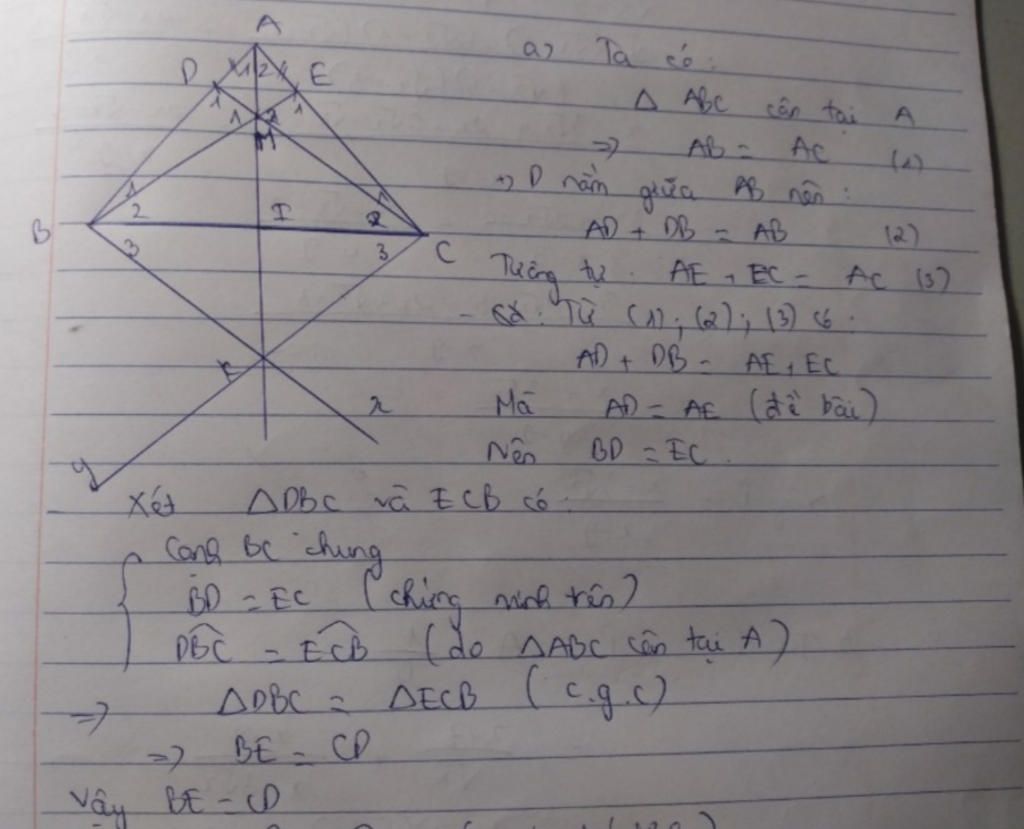 A
D 1 2 E
1 1 2 1
M
1 1
B 2 I 2 C
3 3
K x
y
a) Ta có:
Δ ABC cân tại A
=> AB = AC (1)
+) D nằm giữa AB nên:
AD + DB = AB (2)
Tương tự. AE + EC = AC (3)
- Từ (1); (2); (3) có:
AD + DB = AE + EC
Mà AD = AE (đề bài)
Nên BD = EC.
Xét ΔDBC và ECB có:
Cạnh BC chung
BD = EC (chứng minh trên)
DBC = ECB (do ΔABC cân tại A)
=> ΔDBC = ΔECB (c.g.c)
=> BE = CD
Vậy BE = CD